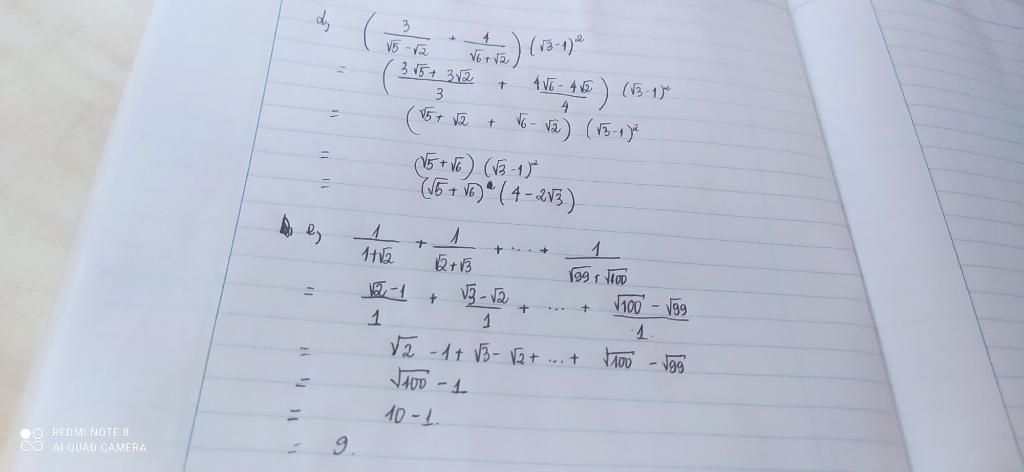 d, ( 3/(√5-√2) + 4/(√6+√2) ) (√3-1)²
= ( (3√5+3√2)/3 + (4√6-4√2)/4 ) (√3-1)²
= (√5+√2 + √6-√2) (√3-1)²
= (√5+√6) (√3-1)²
= (√5+√6) (4-2√3)
e, 1/(1+√2) + 1/(√2+√3) + ... + 1/(√99+√100)
= (√2-1)/1 + (√3-√2)/1 + ... + (√100-√99)/1.
= √2-1+√3-√2+...+ √100-√99
= √100-1
= 10-1.
= 9.
REDMI NOTE 8
AI QUAD CAMERA